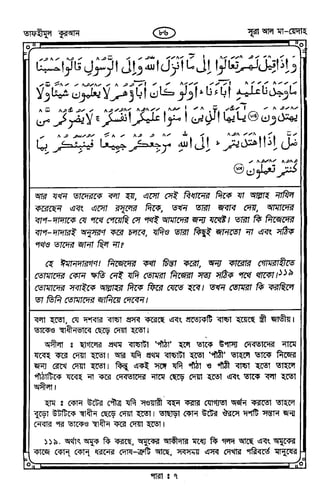 তাফহীমুল কুরআন
৮৬
সূরা আল মা-য়েদাহ
وَإِذَا قِيلَ لَهُمْ تَعَالَوْا إِلَىٰ مَا أَنْزَلَ اللَّهُ وَإِلَى الرَّسُولِ قَالُوا حَسْبُنَا
مَا وَجَدْنَا عَلَيْهِ آبَاءَنَا ۚ أَوَلَوْ كَانَ آبَاؤُهُمْ لَا يَعْلَمُونَ شَيْئًا وَلَا
يَهْتَدُونَ ۝ يَا أَيُّهَا الَّذِينَ آمَنُوا عَلَيْكُمْ أَنْفُسَكُمْ ۖ لَا يَضُرُّكُمْ مَنْ
ضَلَّ إِذَا اهْتَدَيْتُمْ ۚ إِلَى اللَّهِ مَرْجِعُكُمْ جَمِيعًا فَيُنَبِّئُكُمْ بِمَا
كُنْتُمْ تَعْمَلُونَ ۝
আর যখন তাদেরকে বলা হয়, এসো সেই বিধানের দিকে যা আল্লাহ নাযিল
করেছেন এবং এসো রসূলের দিকে, তখন তারা জবাব দেয়, আমাদের
বাপ-দাদাকে যে পথে পেয়েছি সে পথই আমাদের জন্য যথেষ্ট। তারা কি নিজেদের
বাপ-দাদারই অনুসরণ করে চলবে, যদিও তারা কিছুই জানতো না এবং সঠিক
পথও তাদের জানা ছিল না?
হে ঈমানদারগণ! নিজেদের কথা চিন্তা করো, অন্য কারোর গোমরাহীতে
তোমাদের কোন ক্ষতি নেই যদি তোমরা নিজেরা সত্য সঠিক পথে থাকো।১১৯
তোমাদের সবাইকে আল্লাহর দিকে ফিরে যেতে হবে। তখন তোমরা কি করছিলে
তা তিনি তোমাদের জানিয়ে দেবেন।
বলা হতো, যে দশবার বাচ্চা প্রসব করেছে এবং প্রত্যেকটি বাচ্চা হয়েছে স্ত্রী জাতীয়।
তাকেও স্বাধীনভাবে ছেড়ে দেয়া হতো।
অসীলা : ছাগলের প্রথম বাচ্চাটা 'পাঁঠা' হলে তাকে উপাস্য দেবতাদের নামে
যবেহ করে দেয়া হতো। আর যদি প্রথম বাচ্চাটা হতো 'পাঁঠী' তাহলে তাকে নিজের
জন্য রেখে দেয়া হতো। কিন্তু একই সঙ্গে যদি পাঁঠা ও পাঁঠী বাচ্চা হতো তাহলে
পাঁঠাটিকে যবেহ না করে দেবতাদের নামে ছেড়ে দেয়া হতো এবং তাকে বলা হতো
অসীলা।
হাম : কোন উটের পৌত্র যদি সওয়ারী বহন করার যোগ্যতা অর্জন করতো তাহলে
বুড়ো উটটিকে স্বাধীন ছেড়ে দেয়া হতো। তাছাড়া কোন উটের ঔরসে দশটি সন্তান জন্ম
নেবার পর তাকেও স্বাধীন করে দেয়া হতো।
১১৯. অর্থাৎ অমুক কি করছে, অমুকের আকীদার মধ্যে কি গলদ আছে এবং অমুকের
কাজে কোন্ কোন্ ধরনের দোষ-ত্রুটি আছে, সবসময় এসব দেখার পরিবর্তে মানুষের
পারা : ৭